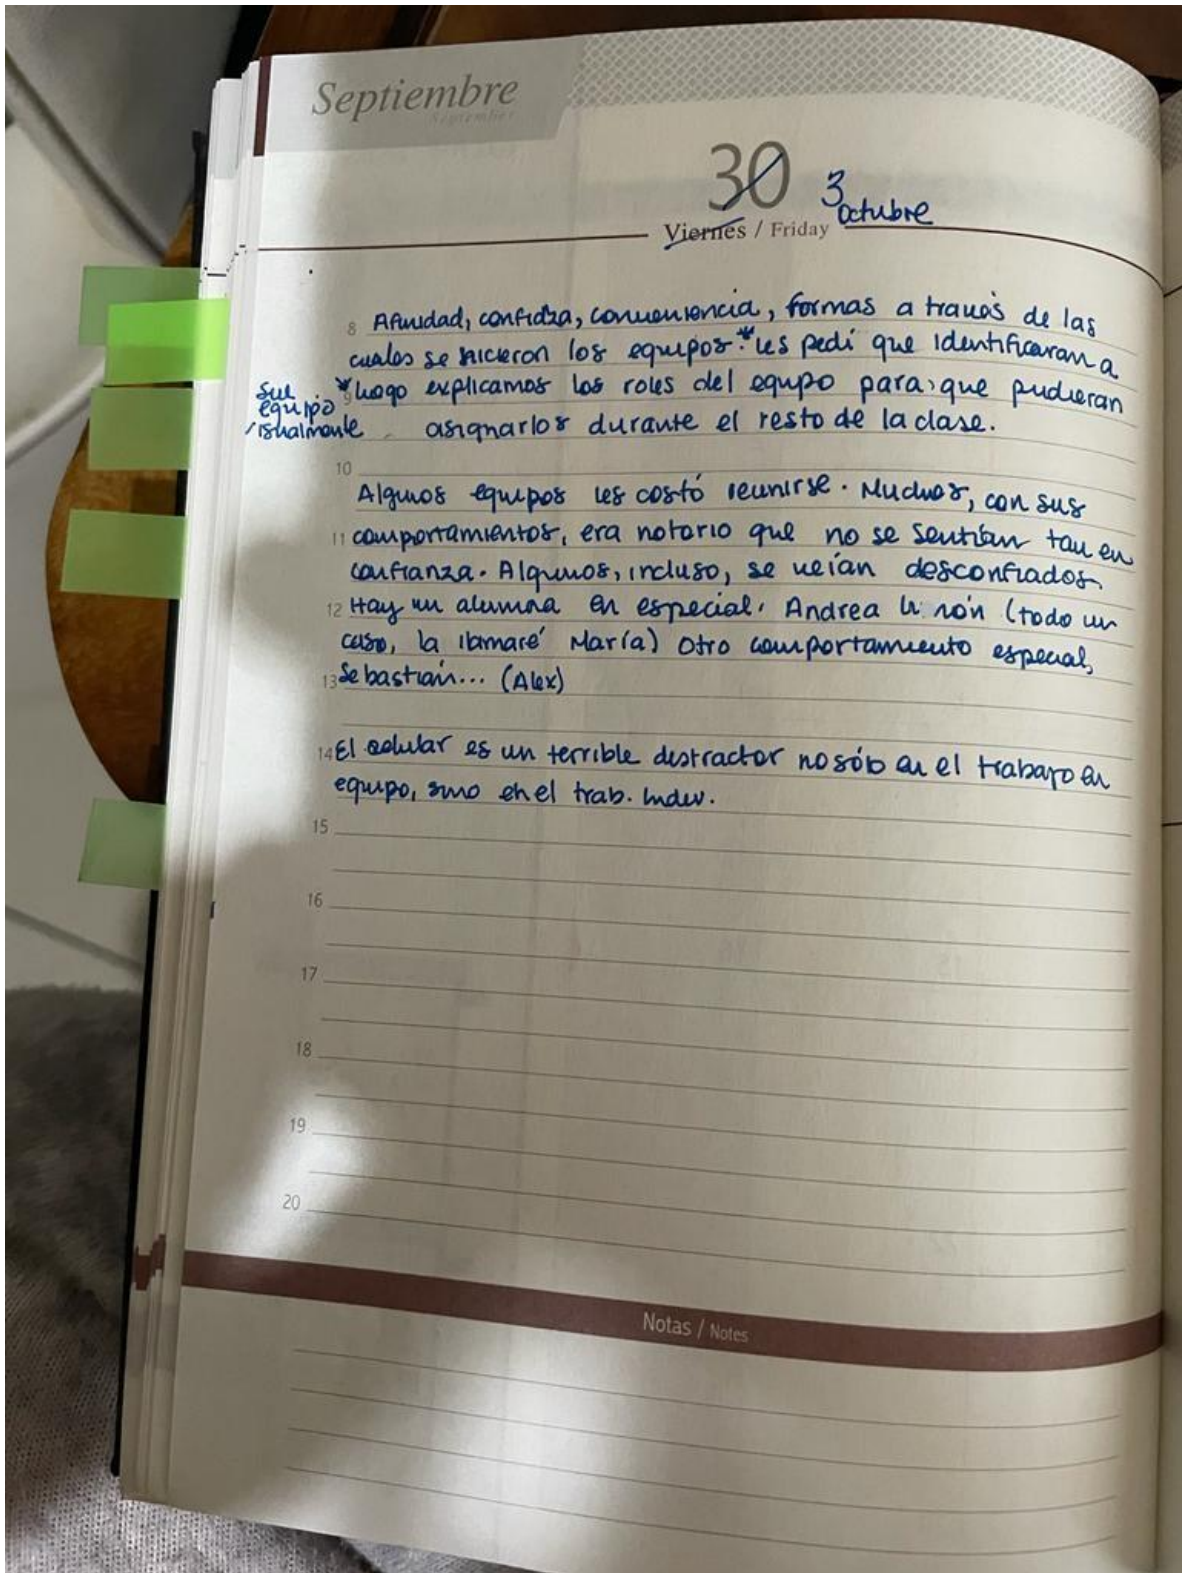 Septiembre
September
30 3
octubre
Viernes / Friday
8 Afinidad, confidza, conveniencia, formas a través de las
cuales se hicieron los equipos.* les pedí que identificaran a
su
equipo
igualmente
9 *luego explicamos los roles del equpo para que pudieran
asignarlos durante el resto de la clase.
10
Algunos equipos les costó reunirse. Muchos, con sus
11 comportamientos, era notorio que no se sentían tan en
confianza. Algunos, incluso, se veían desconfiados.
12 Hay un alumna en especial, Andrea (todo un
caso, la llamaré María) Otro comportamiento especial,
13 Sebastián... (Alex)
14 El celular es un terrible distractor no sólo en el trabajo en
equipo, sino en el trab. Indiv.
15
16
17
18
19
20
Notas / Notes